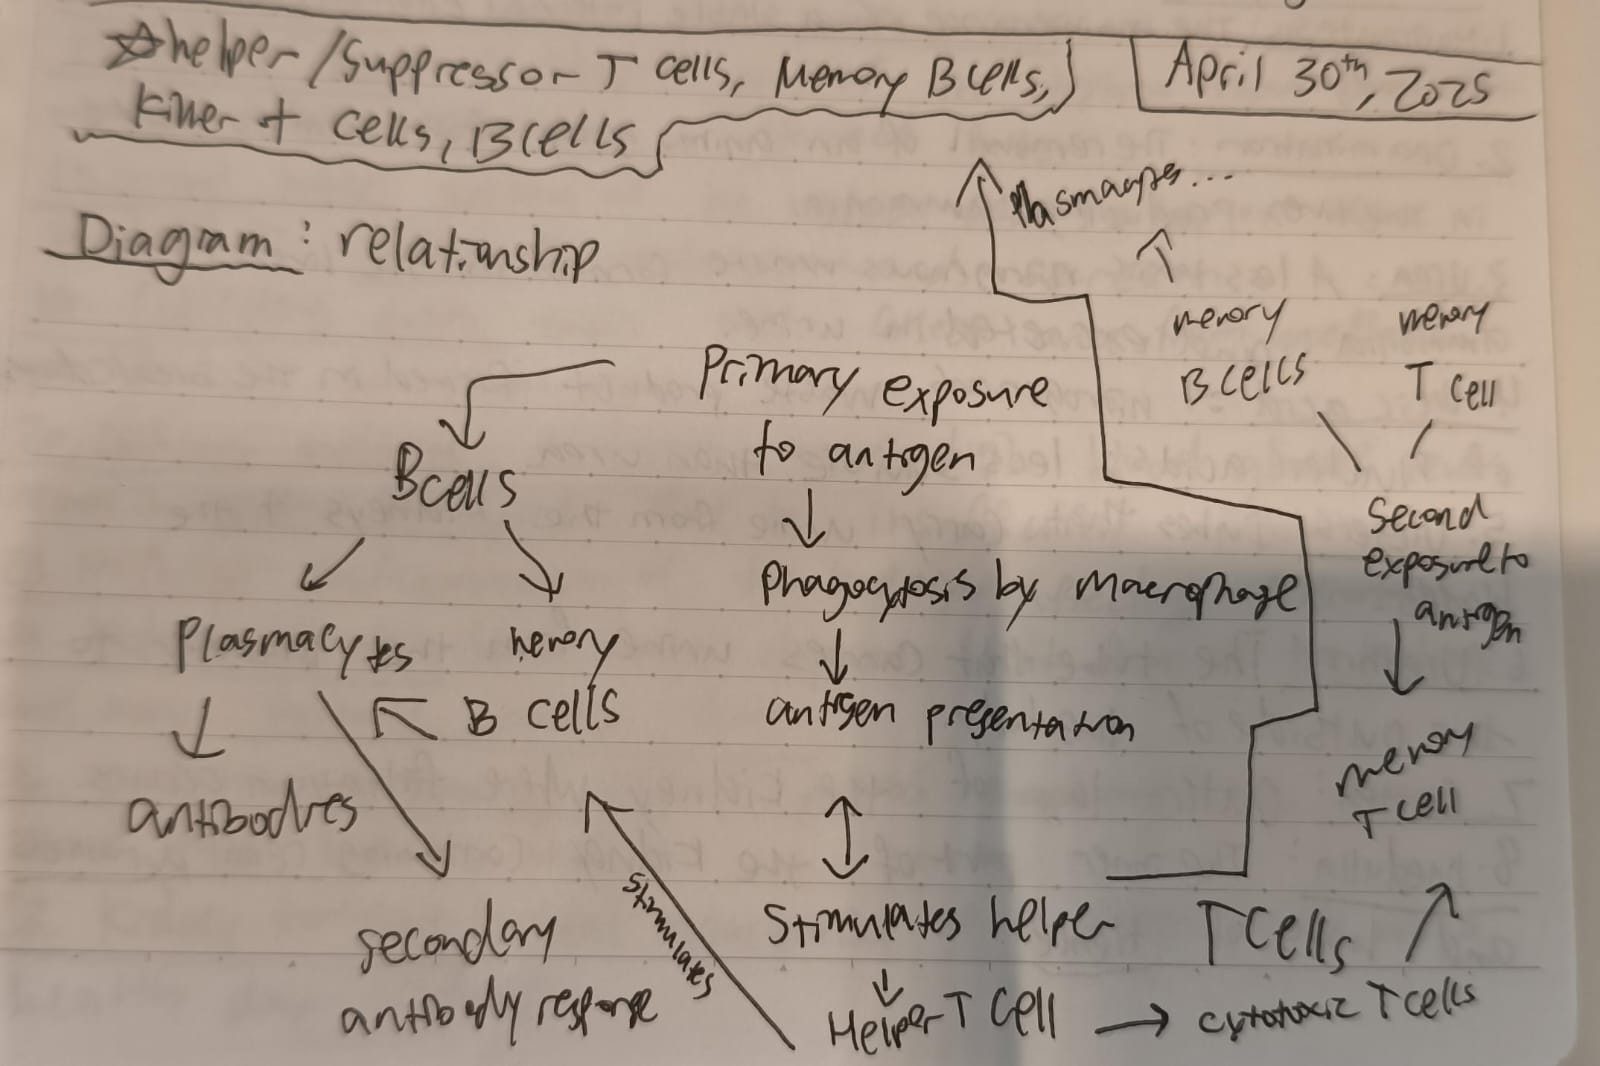 ☆helper/Suppressor T cells, Memory B cells,
Killer t cells, B cells
April 30th, 2025
Diagram: relationship
Plasmacytes...
memory
B cells
memory
T cell
Primary exposure
to antigen
B cells
Second
exposure to
antigen
Phagocytosis by macrophage
Plasmacytes
memory
B cells
antigen presentation
memory
T cell
antibodies
stimulates
Stimulates helper T Cells
secondary
antibody response
Helper T Cell → cytotoxic T cells